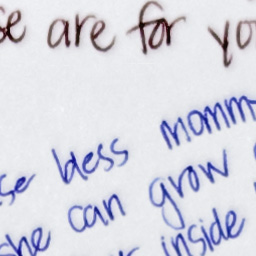 se are for yo
se bless mommy
she can grow
inside